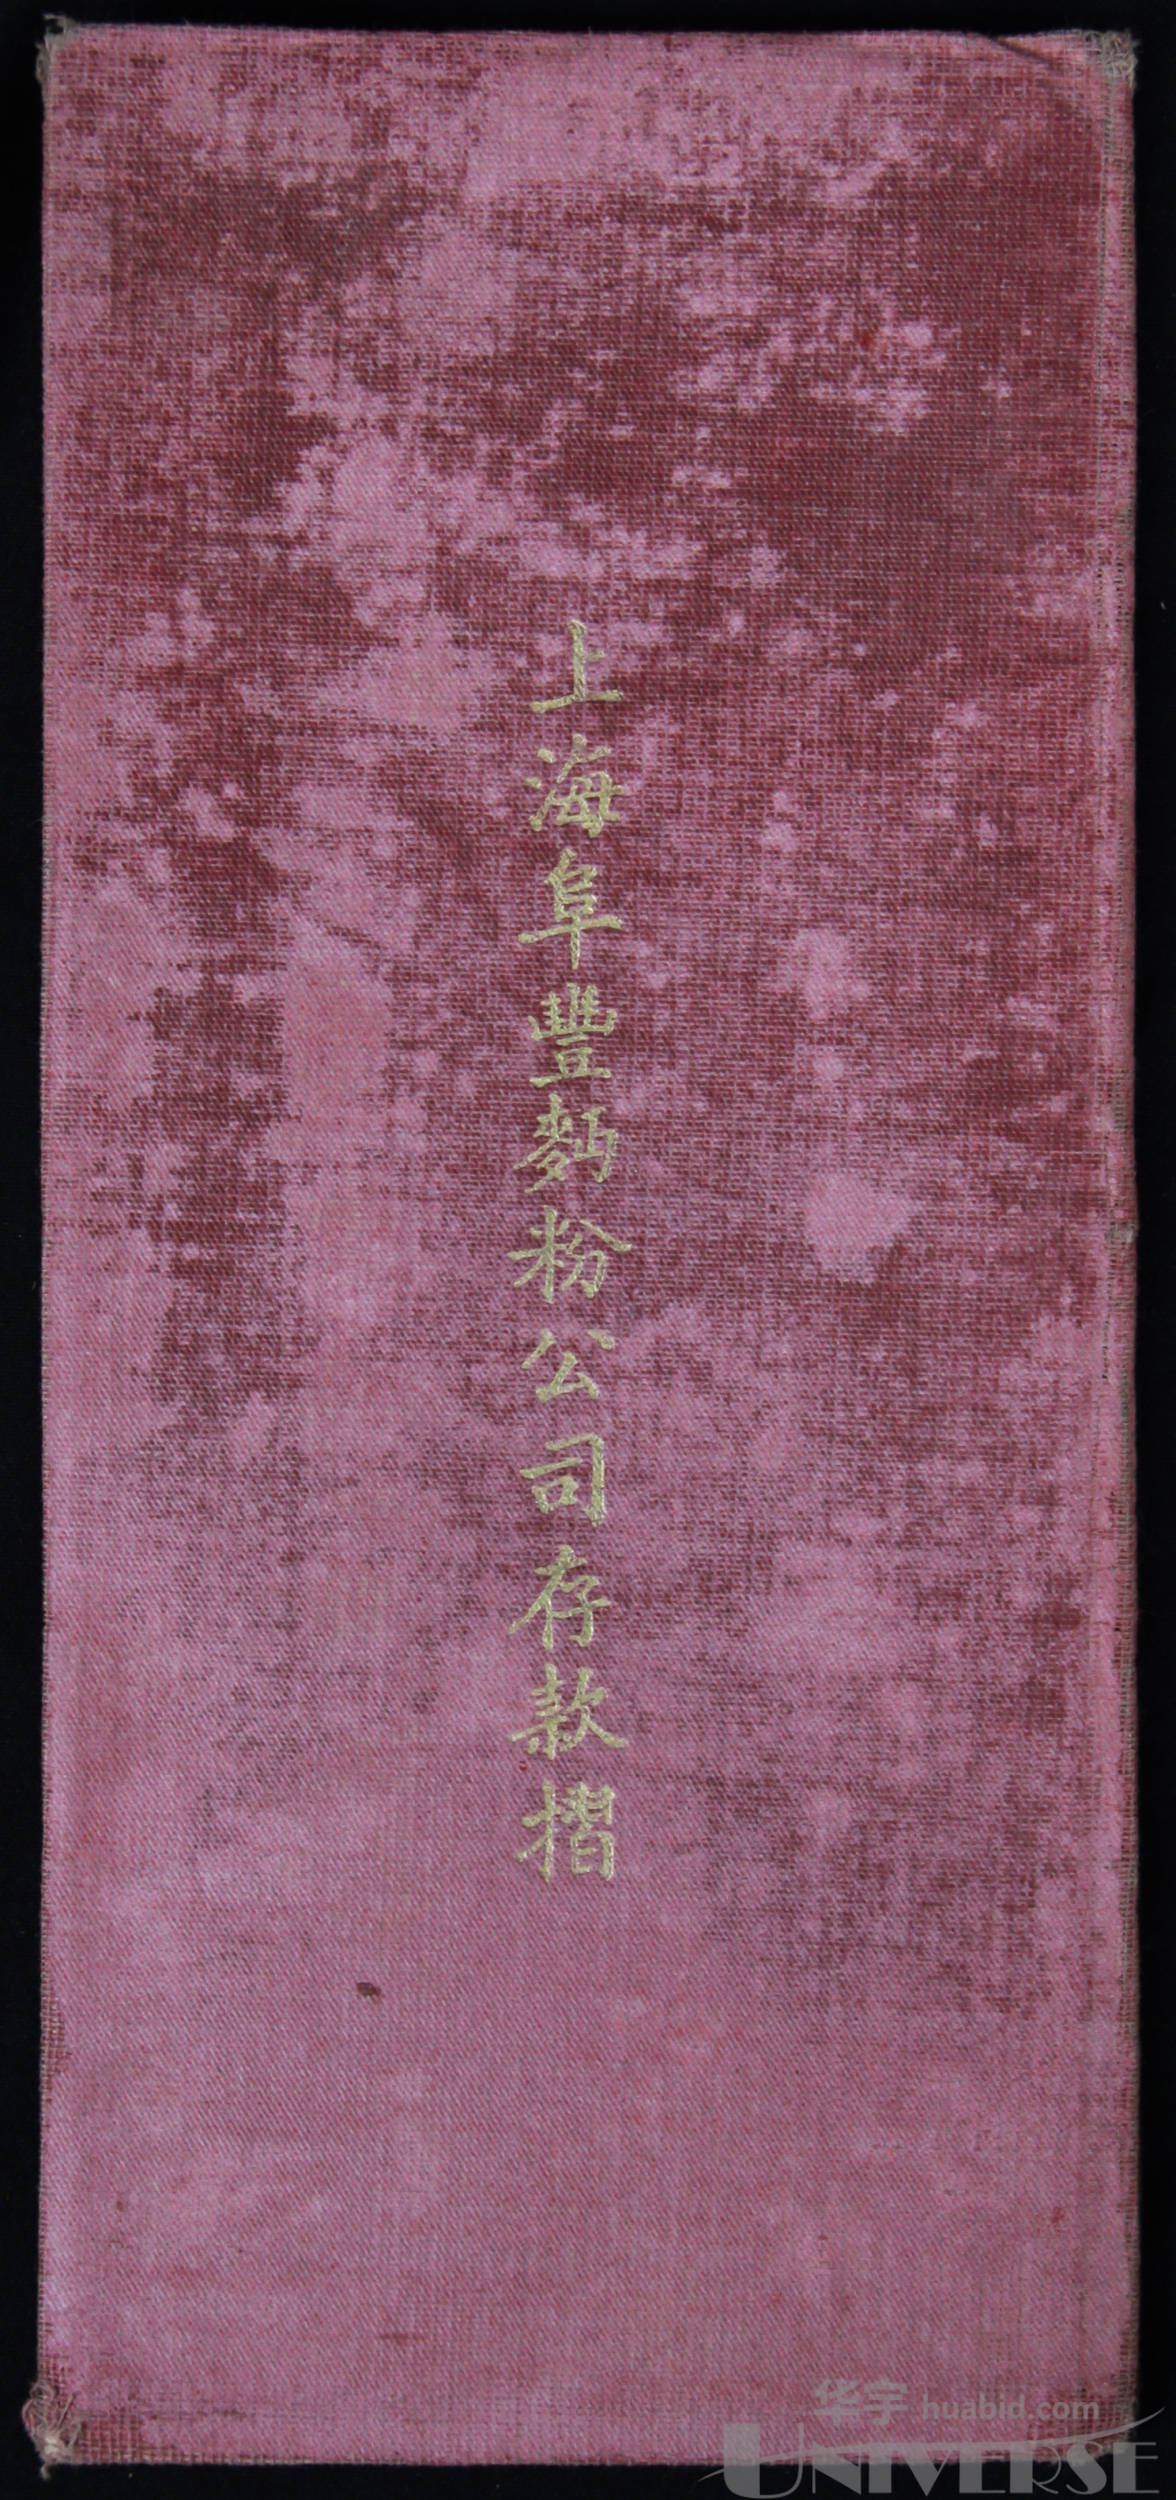 上海阜豐麪粉公司存款摺
华宇 huabid.com
UNIVERSE